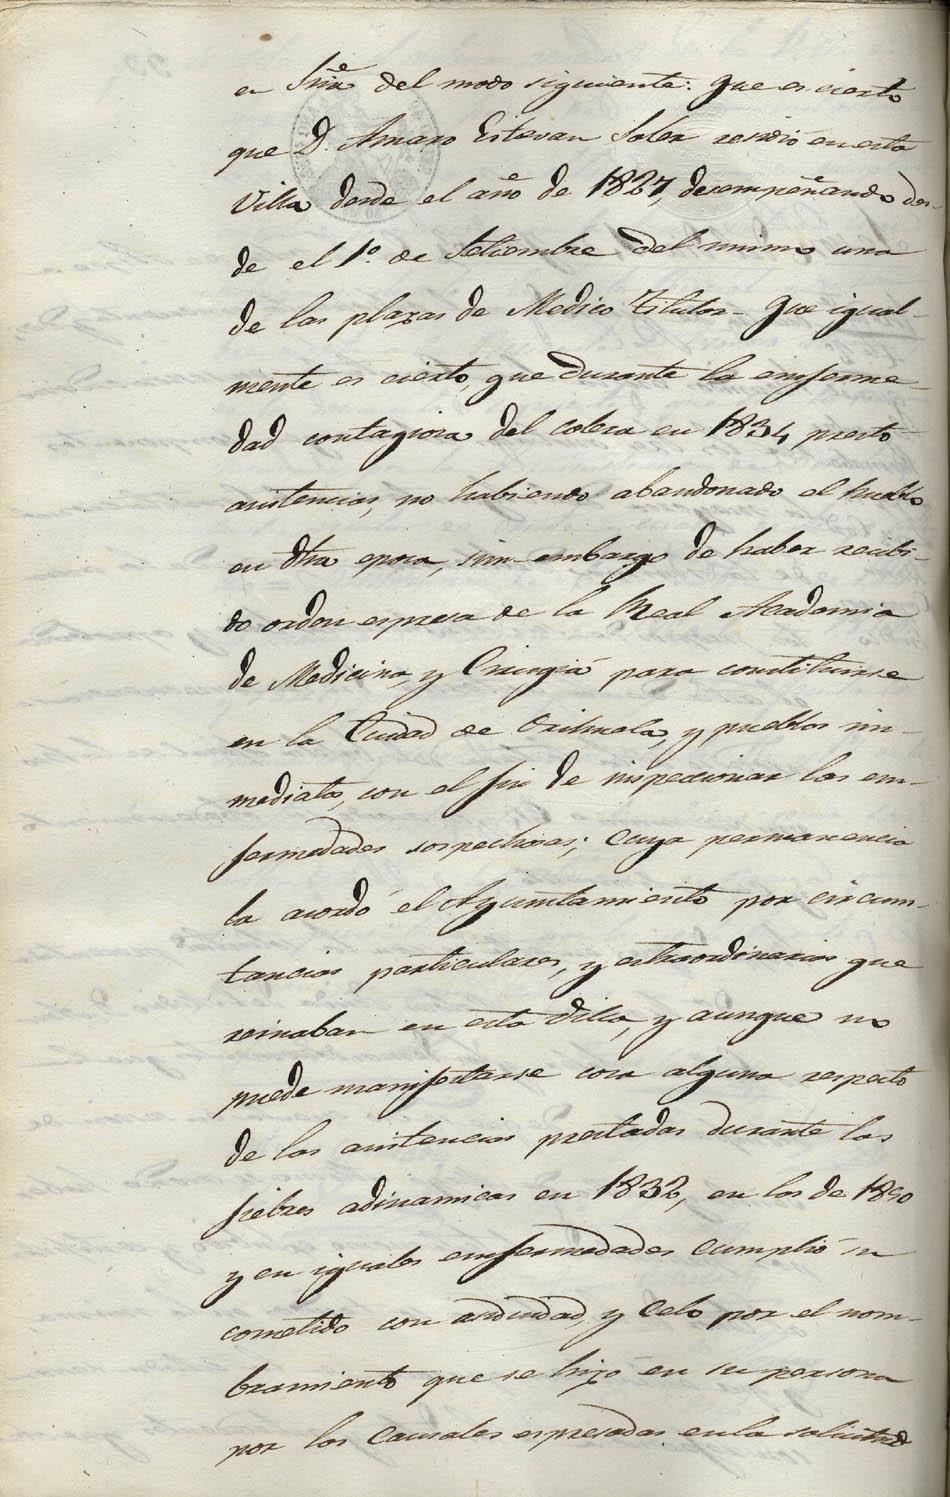 en Sria del modo siguiente: Que es cierto
que D. Amaro Estevan Soler residio en esta
Villa desde el año de 1827, desempeñando des-
de el 1º. de Setiembre del mismo una
de las plazas de Medico Titular- Que igual-
mente es cierto, que durante la enferme-
dad contagiosa del colera en 1834, presto
asistencias, no habiendo abandonado el pueblo
en dha epoca, sin-embargo de haber recibi-
do orden espresa de la Real Academia
de Medicina, y Cirugia para constituirse
en la Ciudad de Orihuela, y pueblos in-
mediatos, con el fin de inspeccionar las en-
fermedades sospechosas; cuya permanencia
la acordó el Ayuntamiento por circuns-
tancias particulares, y estraordinarias que
reinaban en esta Villa, y aunque no
puede manifestarse cosa alguna respecto
de las asistencias prestadas durante las
fiebres adinamicas en 1832, en los de 1850
y en iguales enfermedades cumplió su
cometido con asiduidad, y celo por el nom-
bramiento que se hizo en su persona
por las causales espresadas en la solicitud